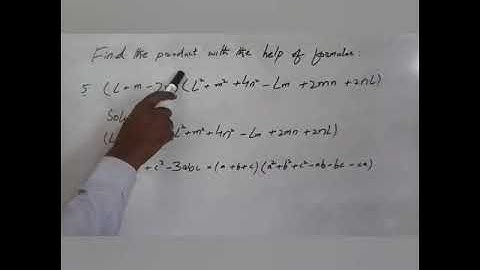 Find the product with the help of formulas:
5 (L+m-2n)(L²+m²+4n²-Lm+2mn+2nL)
Solu
(L L²+m²+4n²-Lm+2mn+2nL)
+c²-3abc=(a+b+c)(a²+b²+c²-ab-bc-ca)